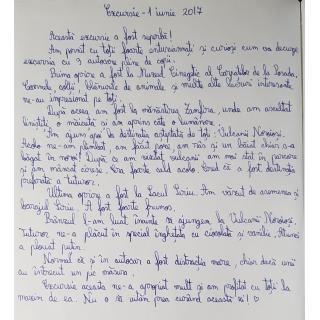 Excursie - 1 iunie 2017
Această excursie a fost superbă!
Am pornit cu toții foarte entuziasmați și curioși cum va decurge
excursia cu 9 autocare pline de copii.
Prima oprire a fost la Muzeul Cinegetic al Carpaților de la Posada.
Coarnele, colții, blănurile de animale și multe alte lucruri interesante
ne-au impresionat pe toți.
După aceea am fost la mănăstirea Zamfira, unde am ascultat
liniștiți o măicuță și am aprins câte o lumânare.
Am ajuns apoi la destinația așteptată de toți: Vulcanii Noroioși.
Acolo ne-am plimbat, am făcut poze, am râs și un băiat chiar s-a
băgat în noroi! După ce am vizitat vulcanii am mai stat în parcare
și am mâncat cireșe. Era foarte cald acolo. Cred că a fost destinația
preferată a tuturor.
Ultima oprire a fost la Lacul Siriu. Am văzut de asemenea și
barajul Siriu. A fost foarte frumos.
Prânzul l-am luat înainte să ajungem la Vulcanii Noroioși.
Tuturor ne-a plăcut în special înghețata cu ciocolată și vanilie. Atunci
a plouat puțin.
Normal că și în autocar a fost distracția mare, chiar dacă unii
au întrecut un pic măsura.
Excursia aceasta ne-a apropiat mult și am profitat cu toții la
maxim de ea. Nu o să uităm prea curând această zi!